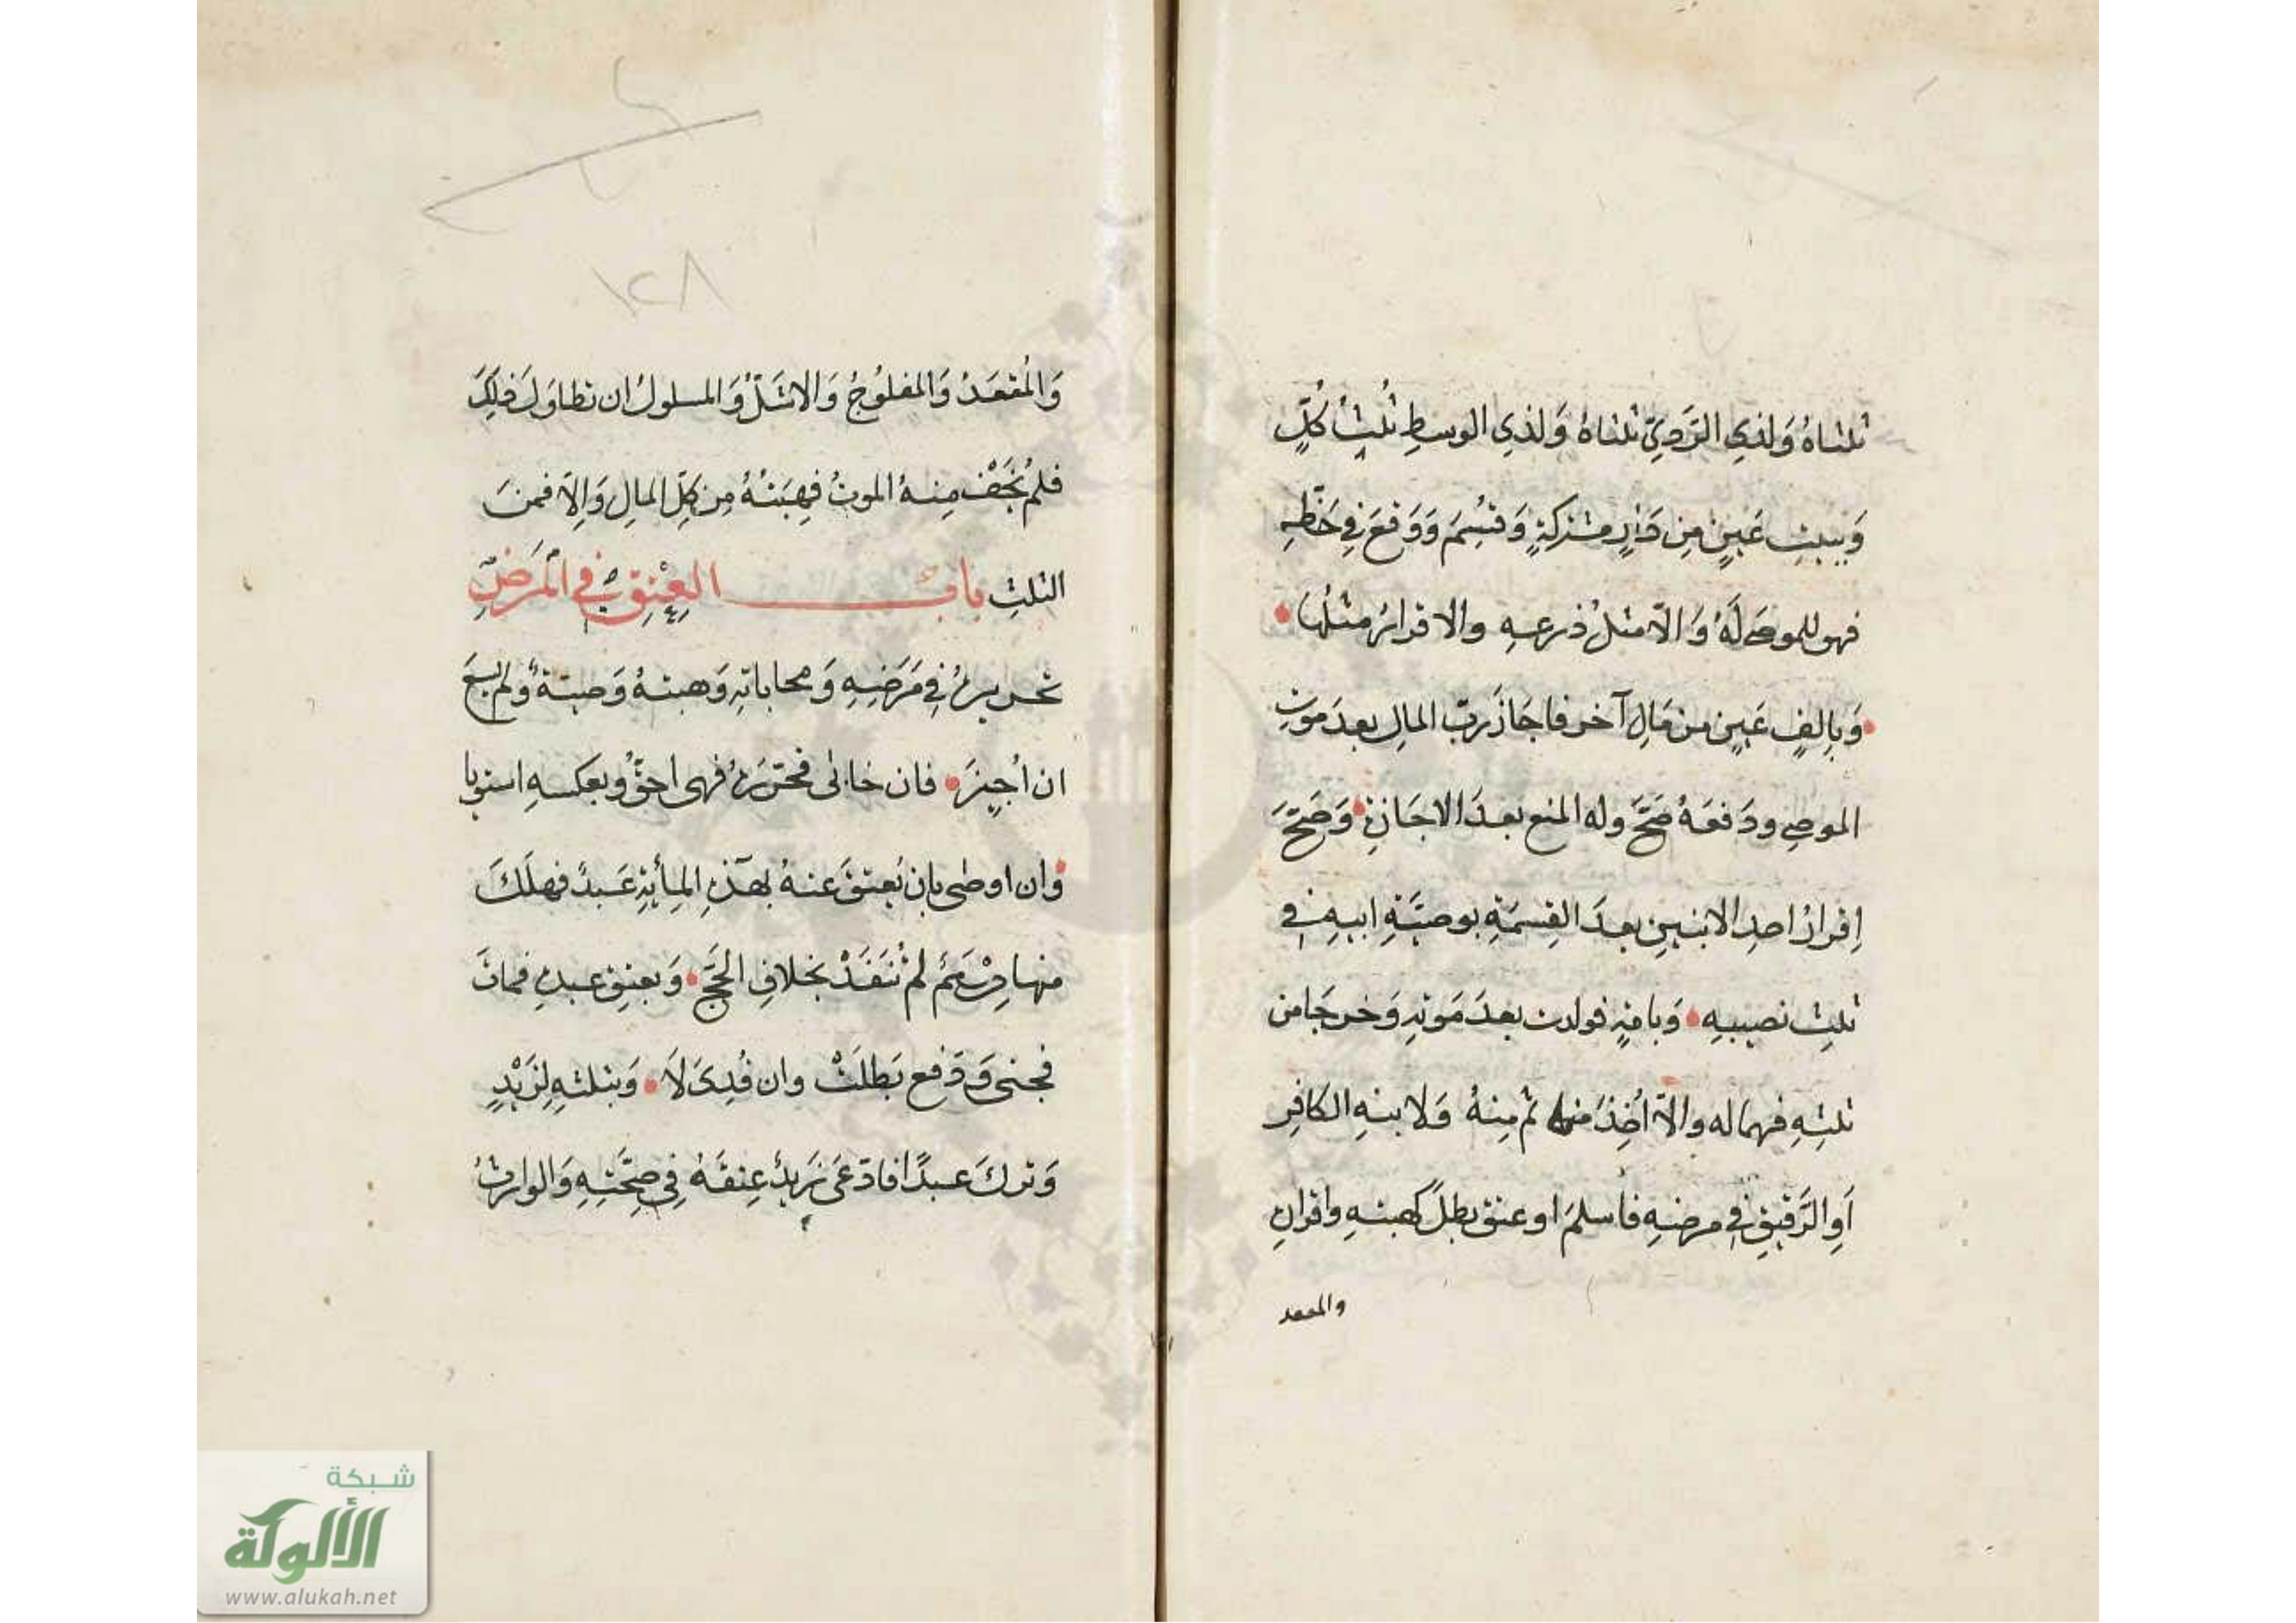 ثلثاهُ وَلذي الرَّدِيّ ثلثاهُ وَلذي الوسطِ ثُلثُ كُلٍّ
وَببيتِ عَيِنٍ مِن دَارٍ مشتركةٍ وَقُسِمَ وَوَقعَ فِي حَظِّهِ
فهو للموصَى لَهُ وَالّا مثلُ ذرعهِ والاقرارُ مثلُها
وَبِالفٍ عَيِنٍ من مَالِ آخر فاجَازَ ربّ المالِ بعدَ موتِ
الموصِي ودَفعَهُ صَحَّ وله المنع بعدَ الاجَازةِ وَصَحَّ
اِقرارُ احدِ الابنينِ بعدَ القِسمَةِ بوصيَّةِ ابيهِ في
ثلثِ نصيبهِ وَبامةٍ فولدت بعدَ مَوتهِ وَخرجَا من
ثلثِهِ فهما له والّا اُخِذَ منها ثم مِنهُ وَلابنهِ الكافِرِ
اَوِ الرَّقيقِ في مرضهِ فاسلمَ او عتق بطلَ كهبتهِ واقرارهِ
والمععد
١٢٨
وَالمُقعَدُ وَالمفلوُجُ وَالاشَلُّ وَالمسلولُ ان تطاوَلَ ذلِكَ
فلم يُخَفْ مِنهُ الموتُ فهِبَتُهُ مِن كلِّ المالِ وَاِلّا فمنَ
الثلثِ بابُ العِتقِ في المَرَضِ
تحريرهُ في مَرَضِهِ وَمحاباتهِ وَهبتهُ وَصيّةٌ ولم يسَعَ
ان اُجِيزَ فان حابى فحرّرهُ فهى احقُّ وبعكسهِ استويا
وان اوصى بان يُعتقَ عنهُ بهَذهِ المِأيةِ عَبدٌ فهلَكَ
منها دِرْهَمٌ لم تُنَفَذْ بخلافِ الحَجِّ وَبعتقِ عبدهِ فماتَ
فجنى وَدَفع بَطلَتْ وان فُدِىَ لَا وَبثلثهِ لِزَيْدٍ
وَتركَ عبدًا فادّعَى زيدٌ عِتقَهُ فِي صِحَّتِهِ وَالوارثُ
شبكة
الألوكة
www.alukah.net